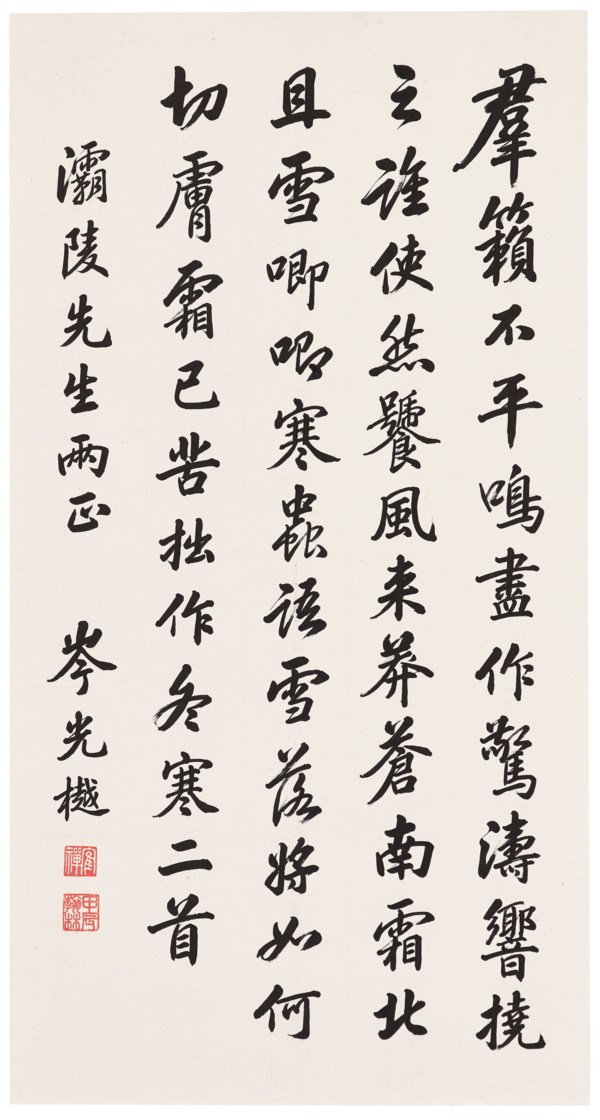 羣籟不平鳴盡作驚濤響撓
之誰使然饕風来莽蒼南霜北
且雪唧唧寒蟲語雪落將如何
切膚霜已苦拙作冬寒二首
灞陵先生兩正 岑光樾
鶴禪
甲辰翰林